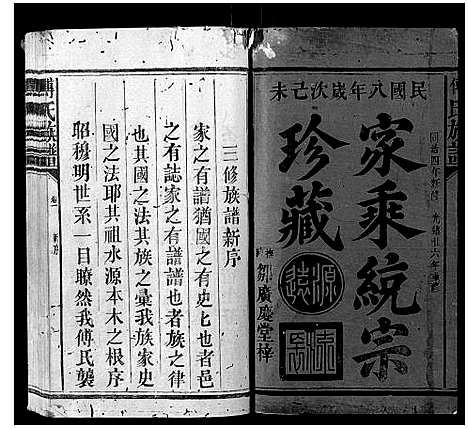 民國八年歲次己未
家乘統宗
珍藏
廣慶堂梓
源遠
流長
傅氏族譜
三修族譜新序
家之有譜猶國之有史七也者邑
之有誌家之有譜譜也者族之律
也其國之法其族之彙我族家史
國之法耶其祖水源本木之根序
昭穆明世系一目瞭然我傅氏襲
傅氏族譜
卷一